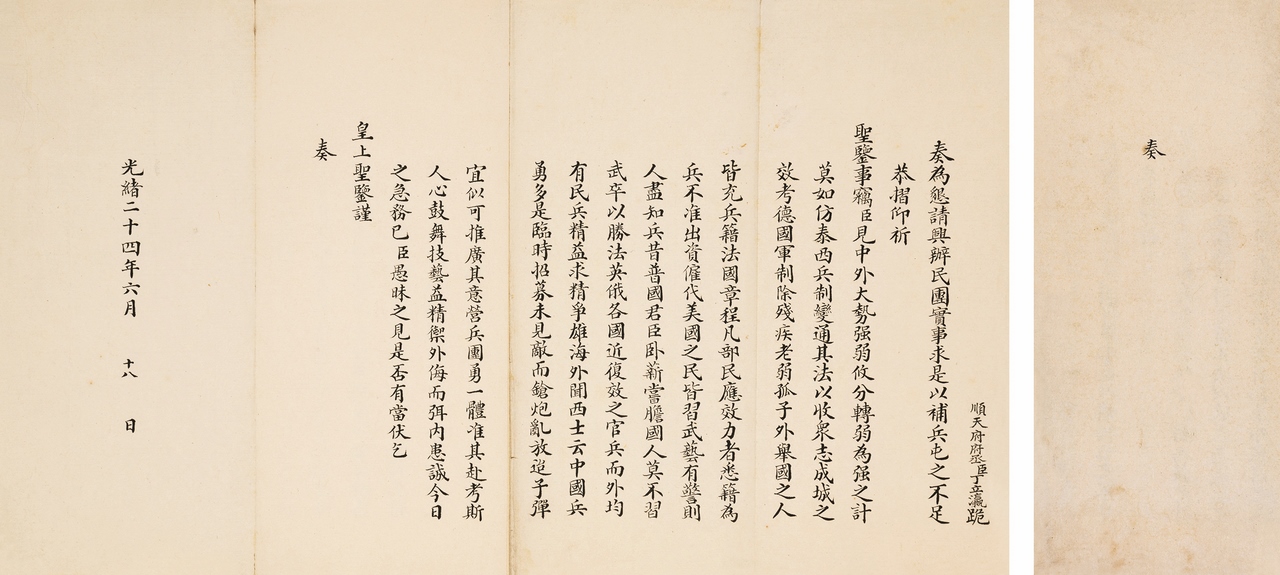 奏
順天府府丞臣丁立瀛跪
奏為懇請興辦民團實事求是以補兵屯之不足
恭摺仰祈
聖鑒事竊臣見中外大勢强弱攸分轉弱為强之計
莫如仿泰西兵制變通其法以收衆志成城之
效考德國軍制除殘疾老弱孤子外舉國之人
皆充兵籍法國章程凡部民應效力者悉籍為
兵不准出資僱代美國之民皆習武藝有警則
人盡知兵昔普國君臣卧薪嘗膽國人莫不習
武卒以勝法英俄各國近復效之官兵而外均
有民兵精益求精爭雄海外聞西士云中國兵
勇多是臨時招募未見敵而鎗炮亂放迨子彈
宜似可推廣其意營兵團勇一體准其赴考斯
人心鼓舞技藝益精禦外侮而弭內患誠今日
之急務已臣愚昧之見是否有當伏乞
皇上聖鑒謹
奏
光緒二十四年六月 十八 日